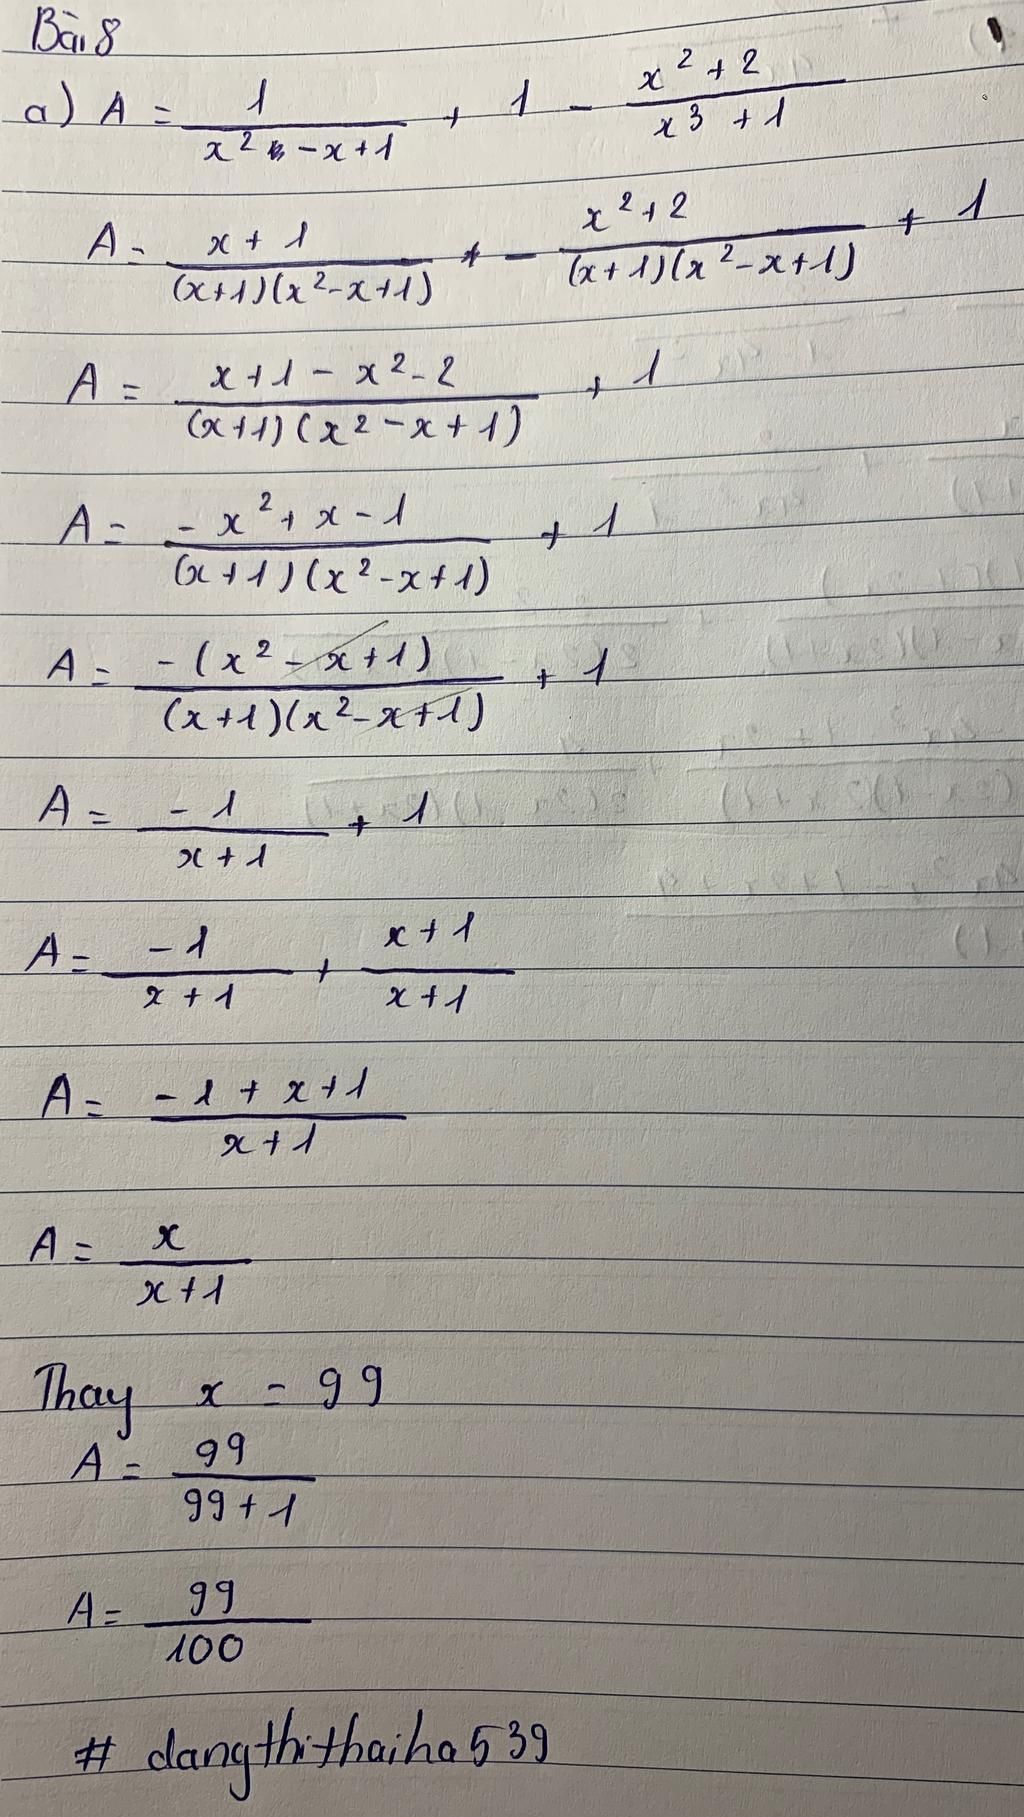 Bài 8
a) A = 1/(x² - x + 1) + 1 - (x² + 2)/(x³ + 1)
A = (x + 1)/((x+1)(x² - x + 1)) - (x² + 2)/((x+1)(x² - x + 1)) + 1
A = (x + 1 - x² - 2)/((x+1)(x² - x + 1)) + 1
A = (-x² + x - 1)/((x+1)(x² - x + 1)) + 1
A = -(x² - x + 1)/((x+1)(x² - x + 1)) + 1
A = -1/(x + 1) + 1
A = -1/(x + 1) + (x + 1)/(x + 1)
A = (-1 + x + 1)/(x + 1)
A = x/(x + 1)
Thay x = 99
A = 99/(99 + 1)
A = 99/100
# dangthithaiha539